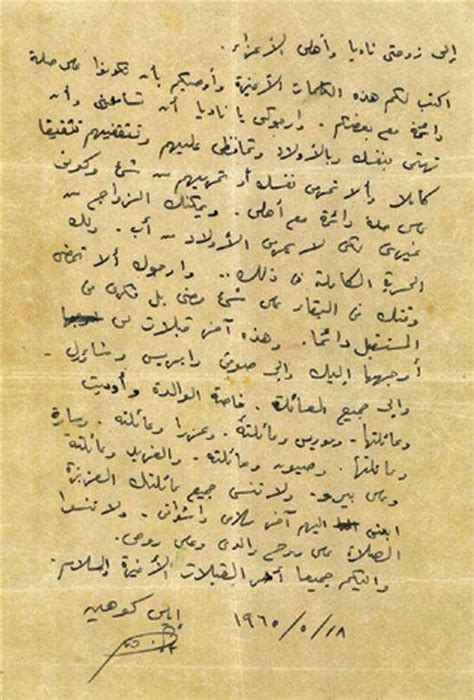 إلى زوجتي ناديا وأهلي الأعزاء.
اكتب لكم هذه الكلمات الأخيرة وأوصيكم بأن تكونوا على صلة
دائمة مع بعضكم. وارجوكي يا ناديا أن تسامحيني وأن
تهتمي بنفسك وبالأولاد وتحافظي عليهم وتثقفيهم تثقيفا
كاملا وألا تحرمي نفسك أو تحرميهم من شيء وكوني
على صلة دائمة مع أهلي. ويمكنك الزواج من
غيري لكي لا يحرم الأولاد من أب. ولك
الحرية الكاملة في ذلك.. وارجوك ألا تمضي
وقتك في البكاء على شيء مضى بل فكري في
المستقبل دائما. وهذه آخر قبلات لي
أوجهها إليك وإلى صوفي وايريس وشائول
وإلى جميع العائلة. خاصة الوالدة وأوديت
وعائلتها. وموريس وعائلته. وعزرا وعائلته. وسارة
وعائلتها. وصيون وعائلته. والفريد وعائلته
وعلى بيبو. ولا تنسي جميع عائلتك العزيزة
ابعثي اليهم آخر سلامي وأشواقي. ولا تنسوا
الصلاة على روح والدي وعلى روحي.
واليكم جميعا آخر القبلات الأخيرة والسلام.
إيلي كوهين
١٩٦٥/٥/١٨